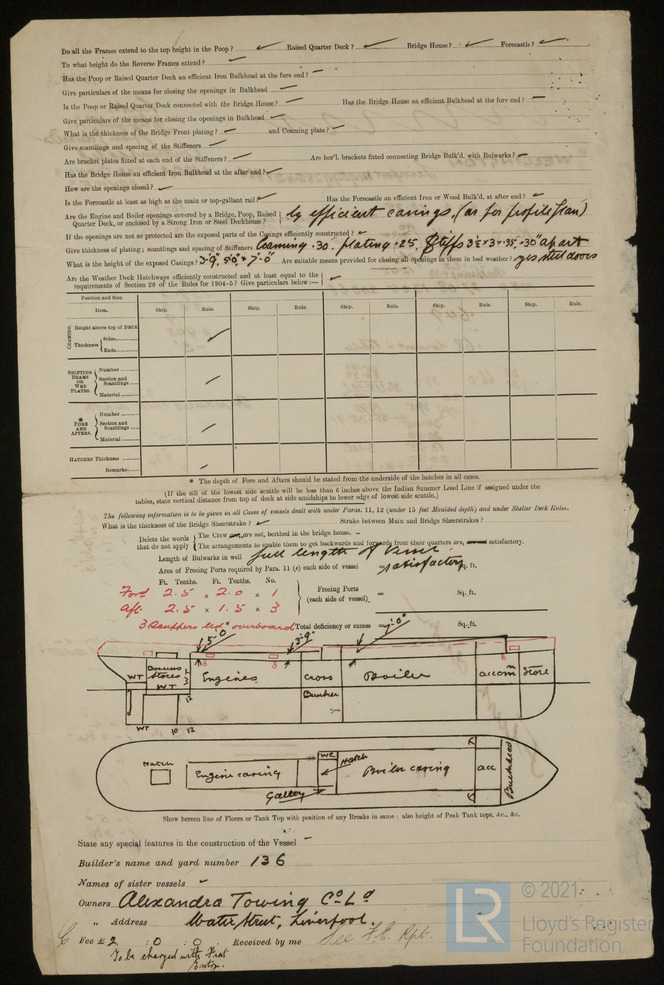 Do all the Frames extend to the top height in the Poop? Raised Quarter Deck? Bridge House? Forecastle?
To what height do the Reverse Frames extend?
Has the Poop or Raised Quarter Deck an efficient Iron Bulkhead at the fore end?
Give particulars of the means for closing the openings in Bulkhead
Is the Poop or Raised Quarter Deck connected with the Bridge House? Has the Bridge House an efficient Bulkhead at the fore end?
Give particulars of the means for closing the openings in Bulkhead
What is the thickness of the Bridge Front plating? and Coaming plate?
Give scantlings and spacing of the Stiffeners
Are bracket plates fitted at each end of the Stiffeners? Are hor'l. brackets fitted connecting Bridge Bulk'd. with Bulwarks?
Has the Bridge House an efficient Iron Bulkhead at the after end?
How are the openings closed?
Is the Forecastle at least as high as the main or top-gallant rail? Has the Forecastle an efficient Iron or Wood Bulk'd. at after end?
Are the Engine and Boiler openings covered by a Bridge, Poop, Raised Quarter Deck, or enclosed by a Strong Iron or Steel Deckhouse? by efficient casings. (as for profile plan)
If the openings are not so protected are the exposed parts of the Casings efficiently constructed?
Give thickness of plating; scantlings and spacing of Stiffeners Coaming .30. plating .25. Stiffs 3½ x 3 x .35. - 30" apart
What is the height of the exposed Casings? 3'-9", 5'0" & 7'-0" Are suitable means provided for closing all openings in them in bad weather? yes steel doors
Are the Weather Deck Hatchways efficiently constructed and at least equal to the
requirements of Section 28 of the Rules for 1904-5? Give particulars below:—
Position and Size.
Item. Ship. Rule. Ship. Rule. Ship. Rule. Ship. Rule.
COAMING. Height above top of DECK
Thickness Sides
Ends
SHIFTING BEAMS OR WEB PLATES. Number
Section and Scantlings
Material
* FORE AND AFTERS. Number
Section and Scantlings
Material
HATCHES Thickness
Remarks
* The depth of Fore and Afters should be stated from the underside of the hatches in all cases.
(If the sill of the lowest side scuttle will be less than 6 inches above the Indian Summer Load Line if assigned under the
tables, state vertical distance from top of deck at side amidships to lower edge of lowest side scuttle.)
The following information is to be given in all Cases of Vessels dealt with under Paras. 11, 12 (under 15 feet Moulded depth) and under Shelter Deck Rules.
What is the thickness of the Bridge Sheerstrake? Strake between Main and Bridge Sheerstrakes?
Delete the words that do not apply The Crew are, are not, berthed in the bridge house.
The arrangements to enable them to get backwards and forwards from their quarters are, are not satisfactory.
Length of Bulwarks in well full length of Vessel
Area of Freeing Ports required by Para. 11 (e) each side of vessel satisfactory Sq. ft.
Ft. Tenths. Ft. Tenths. No.
Ford 2.5 x 2.0 x 1
Aft. 2.5 x 1.5 x 3
Freeing Ports (each side of vessel) = Sq. ft.
3 Scuppers led overboard Total deficiency or excess = Sq. ft.
1'5'.0" 3'.9" 7'.0"
WT Stores WT Engines Cross Bunker Boiler accom Store
WT 10 12
Hatch Engine casing WC Hatch Boiler casing acc Bulkhead
Galley
Show hereon line of Floors or Tank Top with position of any Breaks in same; also height of Peak Tank tops, &c., &c.
State any special features in the construction of the Vessel
Builder's name and yard number 136
Names of sister vessels
Owners Alexandra Towing Co. Ld
" Address Water Street, Liverpool.
Fee £ 2 : 0 : 0 Received by me See F.E. Rpt.
To be charged with First Entry.
LR © 2021
Lloyd's Register
Foundation